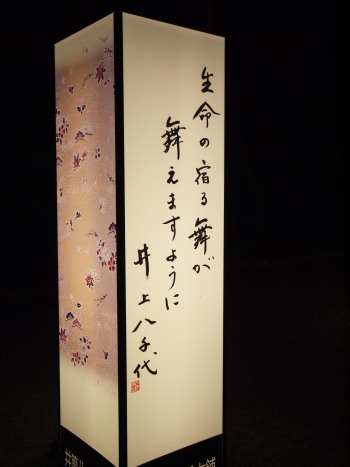 生命の宿る舞が
舞えますように
井上八千代